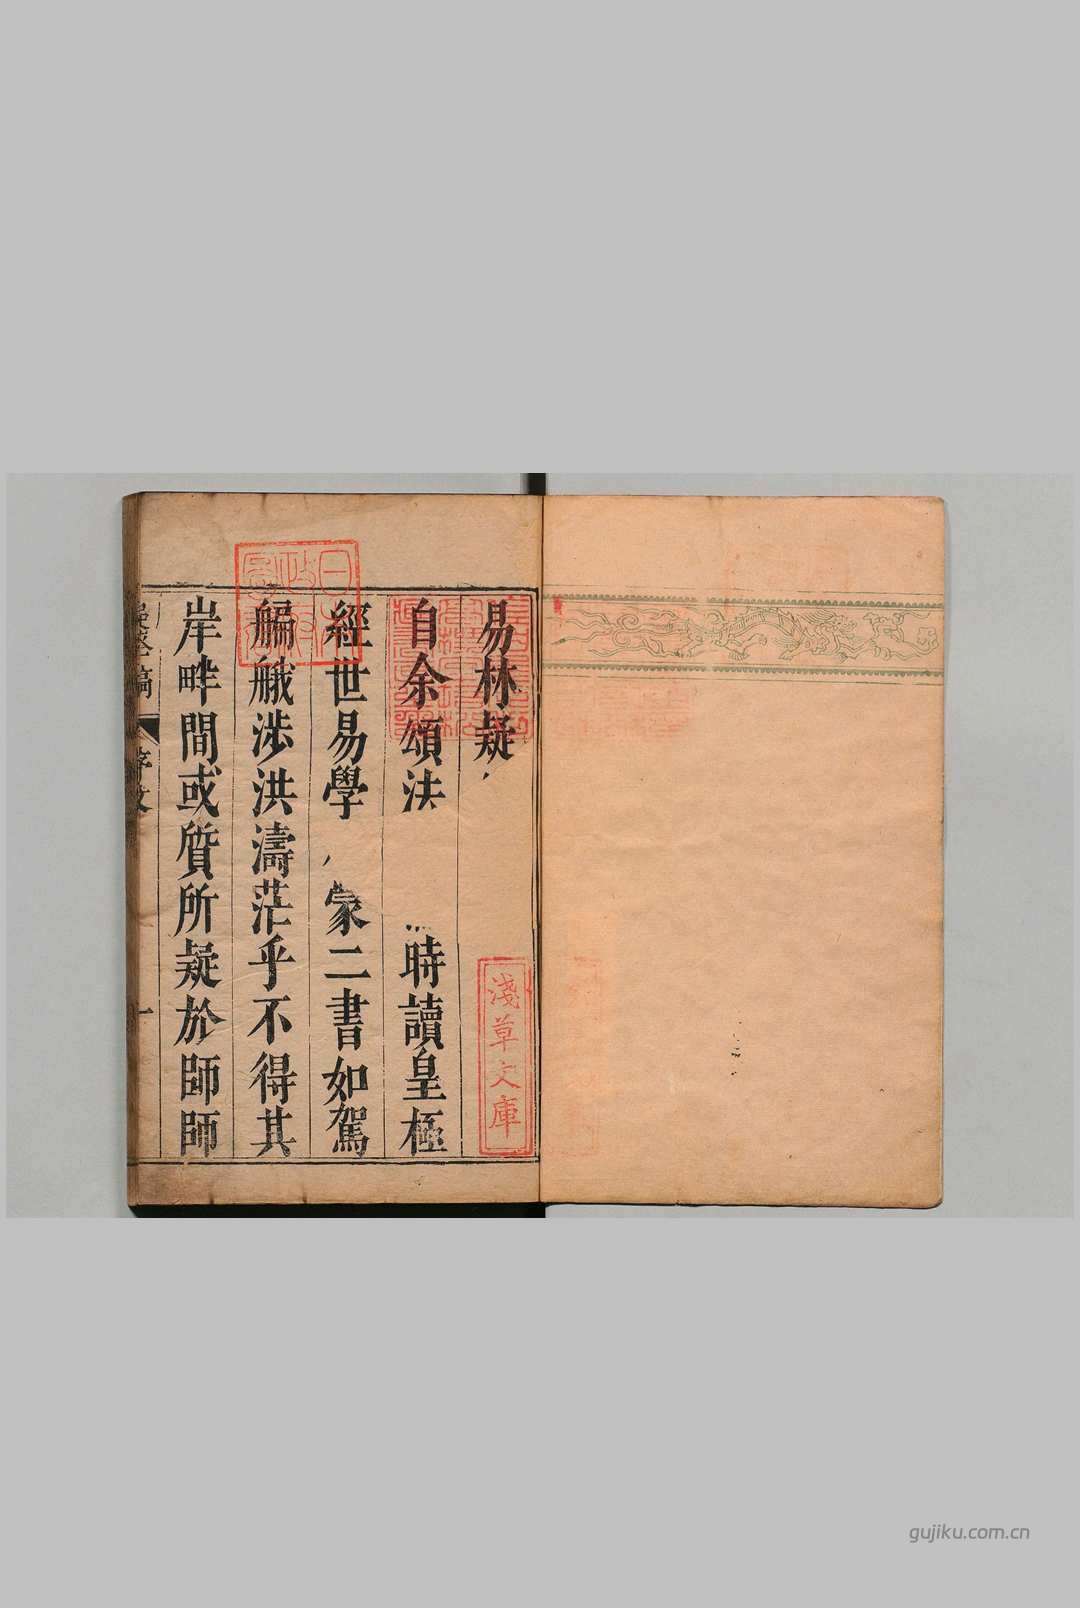 易林疑
自余頌法時讀皇極
經世易學家二書如駕
艑艤涉洪濤茫乎不得其
岸畔間或質所疑於師師
疑釜稿
序文
十
淺草文庫
日本政府圖書
gujiku.com.cn